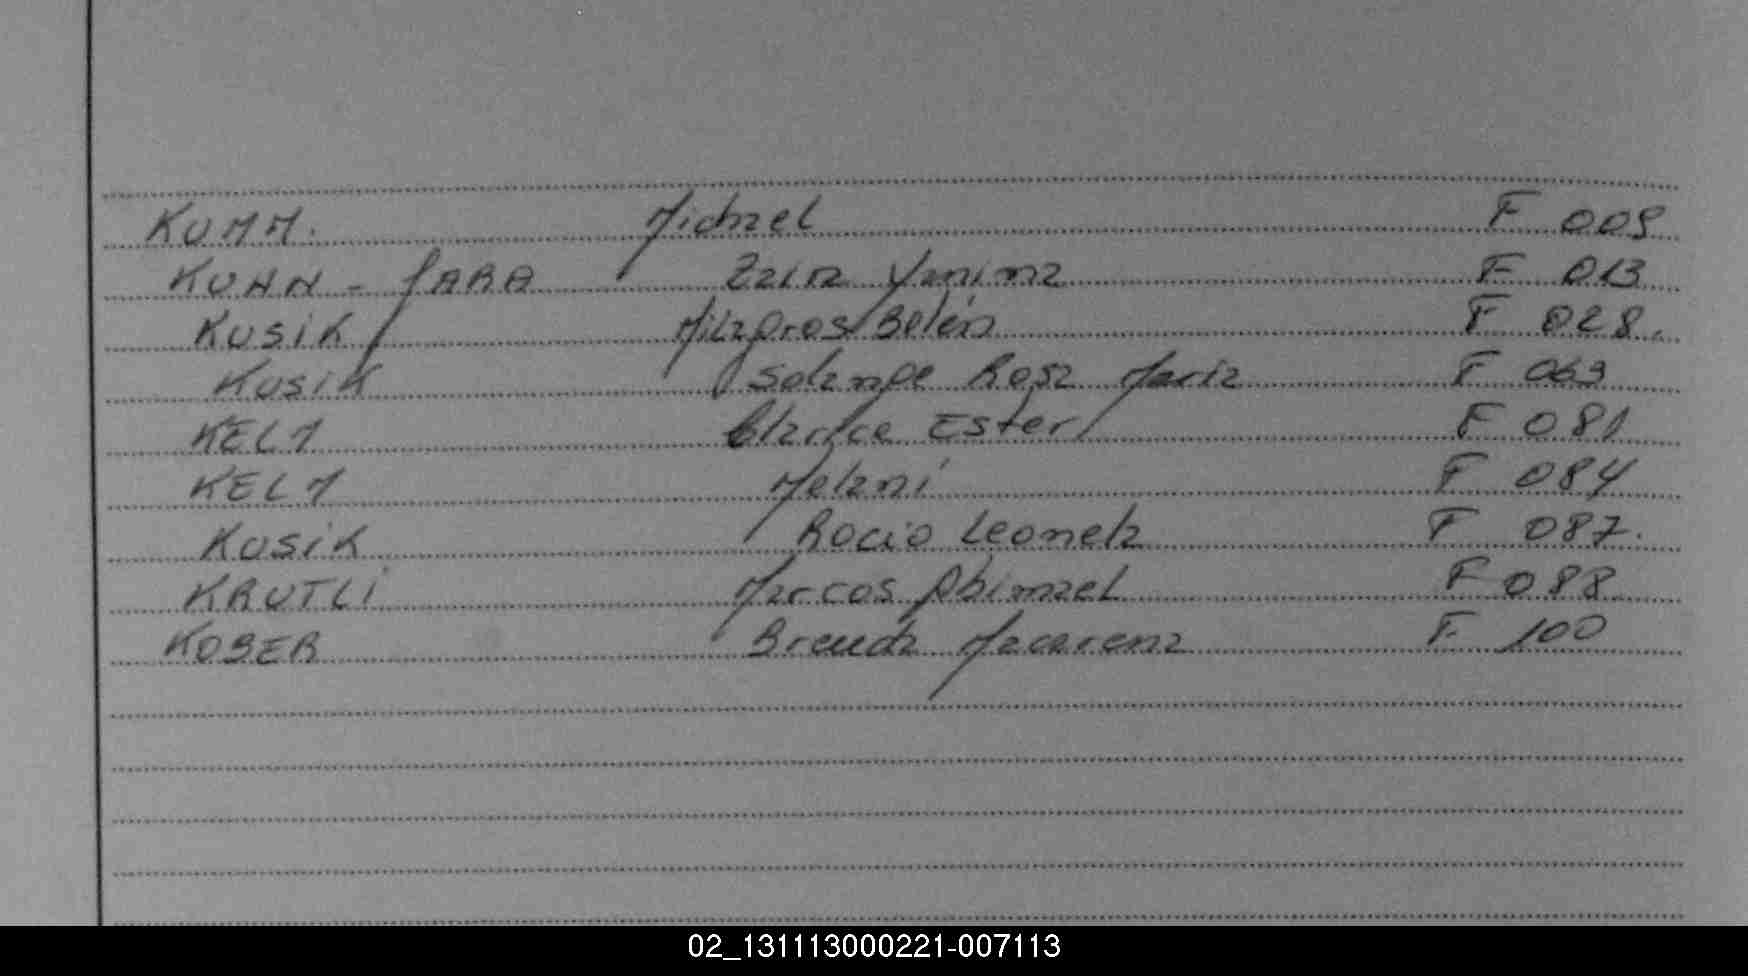 KUMM. Michael F 009
KUHN - JARA Zaira Yanina F 013
KUSIK Milagros Belén F 028.
KUSIK Solange Rosa Maria F 063
KELM Clarice Ester F 081
KELM Melani F 084
KUSIK Rocio Leonela F 087.
KRUTLI Marcos Abimael F 088
KOBER Brenda Macarena F. 100
02_131113000221-007113